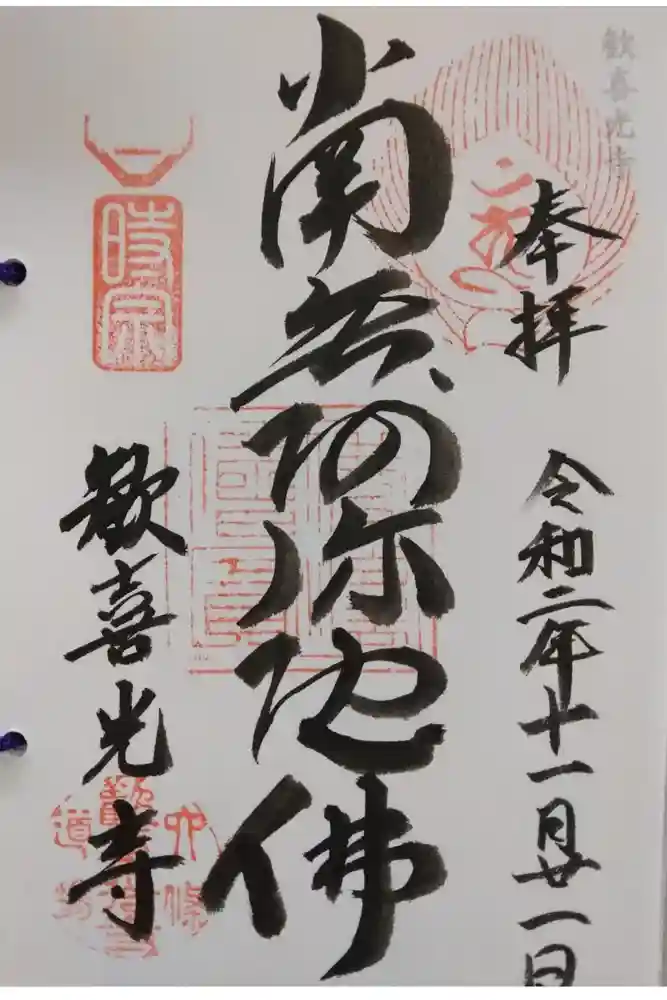 歓喜光寺
奉拝
令和二年十一月廿一日
南無阿弥陀佛
時宗
歓喜光寺
六條
道場